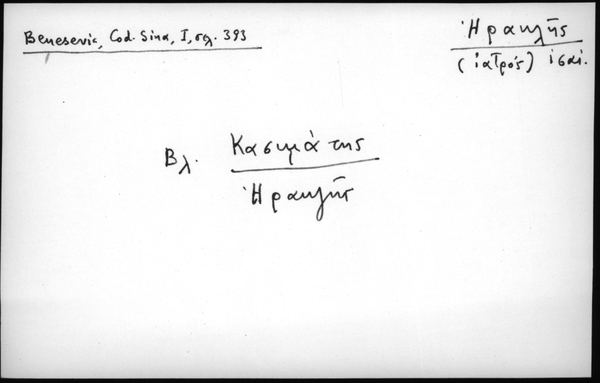 Benesevic, Cod. Sina, I, σελ. 393
Ἡρακλῆς
(ἰατρός) ιθαι.
Βλ. Κασιμάτης
Ἡρακλῆς